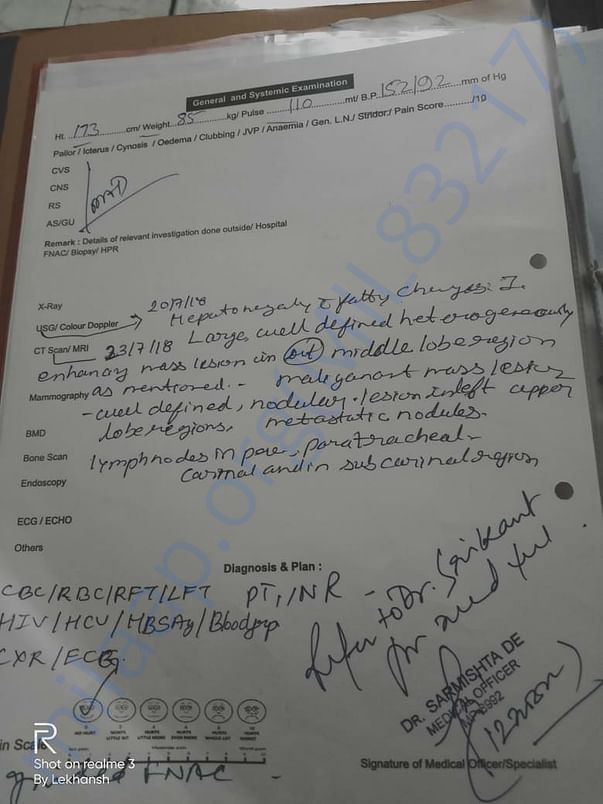 General and Systemic Examination
Ht. 173 cm/ Weight 85 kg/ Pulse 110 mt/ B.P. 152/92 mm of Hg
Pallor / Icterus / Cynosis / Oedema / Clubbing / JVP / Anaemia / Gen. L.N./ Stridor:/ Pain Score........../10
CVS
CNS
RS
AS/GU
NAD
Remark : Details of relevant investigation done outside/ Hospital
FNAC/ Biopsy/ HPR
X-Ray
20/7/18
USG/ Colour Doppler Hepatomegaly fatty changes I.
CT Scan/ MRI 23/7/18 Large, well defined heterogeneously
enhancing mass lesion in middle lobe region
Mammography as mentioned. - malignant mass lesion
- well defined, nodular lesion in left upper
BMD lobe regions, metastatic nodules.
Bone Scan lymphnodes in paratracheal -
Endoscopy carinal and in subcarinal region
ECG / ECHO
Others
Diagnosis & Plan :
CBC/RBC/RFT/LFT PT, INR -
HIV/HCV/HBSAg/Blood grp
CXR/ECG.
Refer to Dr. Srikant
for need ful.
DR. SARMISHTA DE
MEDICAL OFFICER
Signature of Medical Officer/Specialist
NO HURT
HURTS LITTLE BIT
HURTS LITTLE MORE
HURTS EVEN MORE
HURTS WHOLE LOT
HURTS WORST
in Scale
guided FNAC -
R
Shot on realme 3
By Lekhansh